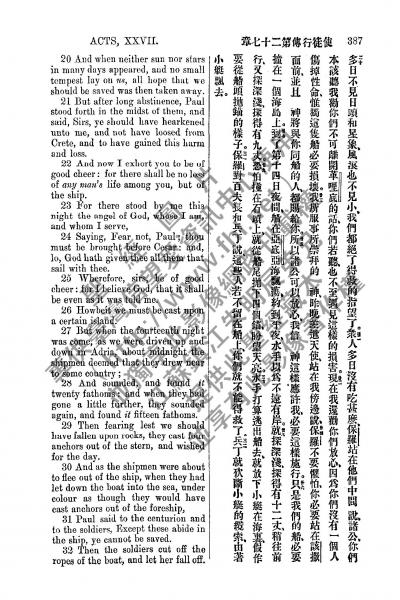 ACTS, XXVII.
使徒行傳第二十七章
387
20 And when neither sun nor stars
in many days appeared, and no small
tempest lay on us, all hope that we
should be saved was then taken away.
21 But after long abstinence, Paul
stood forth in the midst of them, and
said, Sirs, ye should have hearkened
unto me, and not have loosed from
Crete, and to have gained this harm
and loss.
22 And now I exhort you to be of
good cheer: for there shall be no loss
of any man's life among you, but of
the ship.
23 For there stood by me this
night the angel of God, whose I am,
and whom I serve,
24 Saying, Fear not, Paul; thou
must be brought before Cesar: and,
lo, God hath given thee all them that
sail with thee.
25 Wherefore, sirs, be of good
cheer: for I believe God, that it shall
be even as it was told me.
26 Howbeit we must be cast upon
a certain island.
27 But when the fourteenth night
was come, as we were driven up and
down in Adria, about midnight the
shipmen deemed that they drew near
to some country;
28 And sounded, and found it
twenty fathoms: and when they had
gone a little further, they sounded
again, and found it fifteen fathoms.
29 Then fearing lest we should
have fallen upon rocks, they cast four
anchors out of the stern, and wished
for the day.
30 And as the shipmen were about
to flee out of the ship, when they had
let down the boat into the sea, under
colour as though they would have
cast anchors out of the foreship,
31 Paul said to the centurion and
to the soldiers, Except these abide in
the ship, ye cannot be saved.
32 Then the soldiers cut off the
ropes of the boat, and let her fall off.
多日不見日頭和星象風浪也不見小我們都絕了得救的指望了眾人多日沒有吃甚麼保羅站在他們中間說諸公你們
本該聽我勸你們不可離開革哩底的話你們若聽也不至遇見這樣的損害現在我還勸你們放心因爲你們沒有一個人
傷掉性命惟獨這隻船必要損壞我所服事所崇拜的 神昨晚差遣天使站在我傍邊說保羅不要懼怕你必要站在該撒
面前並且 神將與你同船的人都賜給你所以諸公可以放心我信 神這樣應許我必要這樣施行只是我們的船必要
撞在一個海島上到了第十四日夜間船在亞底亞海飄蕩約到半夜水手以爲不遠有岸就探深淺探得有十二丈稍往前
行又探深淺探得有九丈恐怕撞在石頭上就從船尾拋下四個錨盼望天亮水手打算逃出船去就放下小艇在海裏假作
要從船頭拋錨的樣子保羅對百夫長和兵丁說這些人若不留在船上你們就不能得救了兵丁就砍斷小艇的纜索由著
小艇飄去